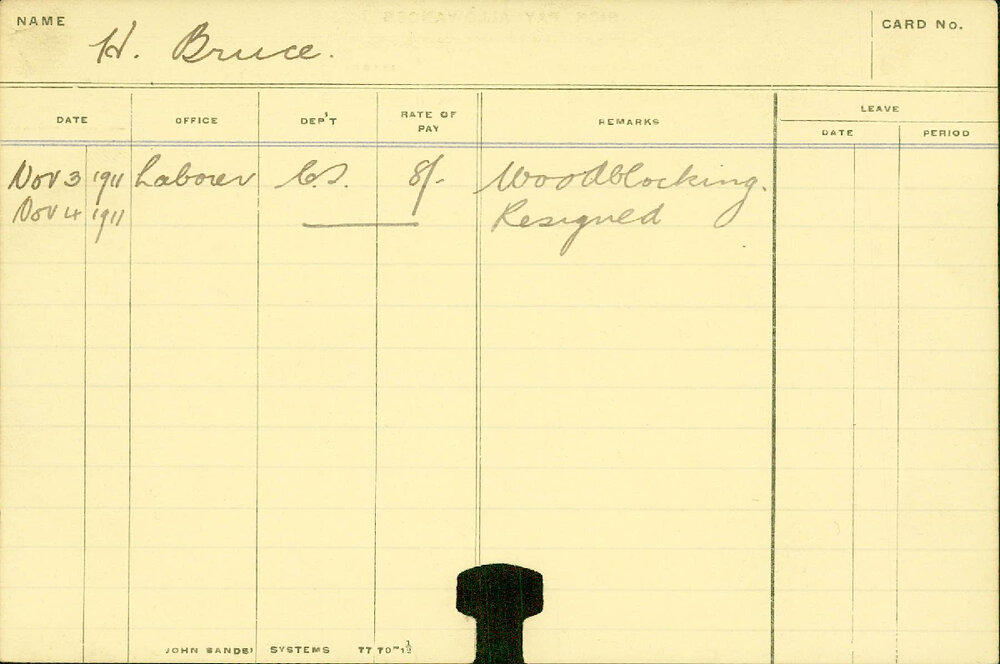 NAME H. Bruce. CARD No.
DATE OFFICE DEP'T RATE OF PAY REMARKS LEAVE
DATE PERIOD
Nov 3 1911 Laborer C.S. 8/- Woodblocking.
Nov 4 1911 Resigned
JOHN SANDS' SYSTEMS